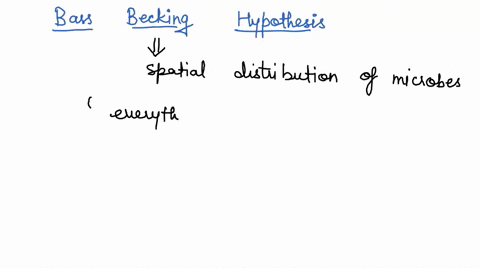 Bass Becking Hypothesis
⇓
spatial distribution of microbes
( everyth